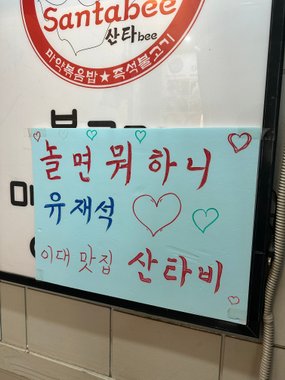 Santabee
산타bee
마약볶음밥★즉석불고기
놀면 뭐하니
유재석
이대 맛집 산타비